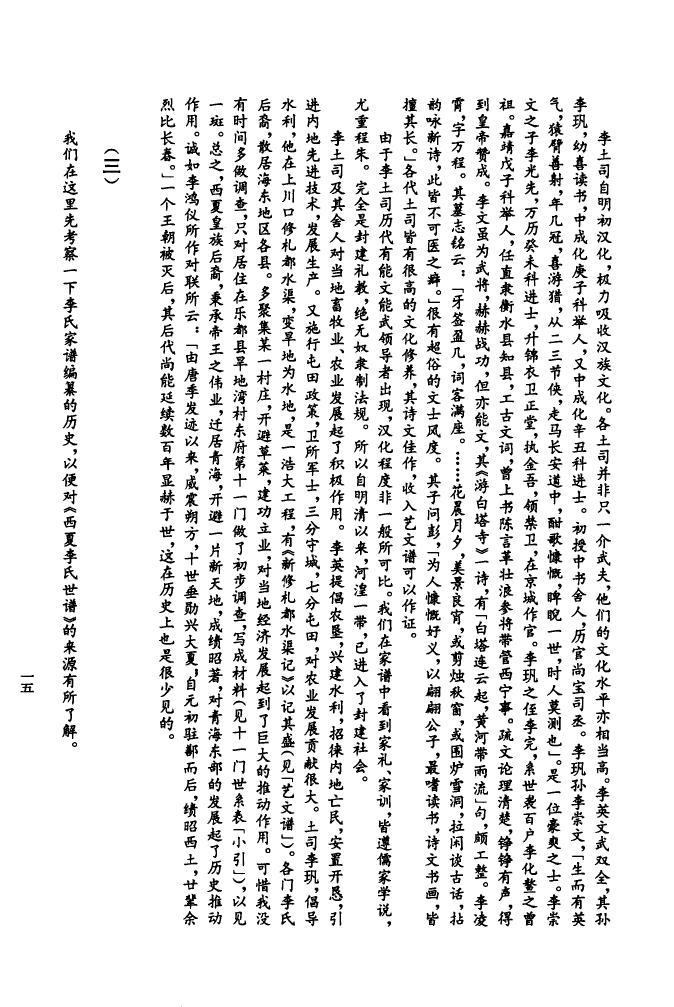 李土司自明初汉化，极力吸收汉族文化。各土司并非只一介武夫，他们的文化水平亦相当高。李英文武双全，其孙
李玑，幼喜读书，中成化庚子科举人，又中成化辛丑科进士。初授中书舍人，历官尚宝司丞。李玑孙李崇文，「生而有英
气，猿臂善射，年几冠，喜游猎，从二三节侠，走马长安道中，酣歌慷慨，睥睨一世，时人莫测也」。是一位豪爽之士。李崇
文之子李光先，万历癸未科进士，升锦衣卫正堂，执金吾，领禁卫，在京城作官。李玑之侄李完，系世袭百户李化鳌之曾
祖。嘉靖戊子科举人，任直隶衡水县知县，工古文词，曾上书陈言革壮浪参将带管西宁事。疏文论理清楚，铮铮有声，得
到皇帝赞成。李文虽为武将，赫赫战功，但亦能文，其《游白塔寺》一诗，有「白塔连云起，黄河带雨流」句，颇工整。李凌
霄，字万程。其墓志铭云：「牙签盈几，词客满座。……花晨月夕，美景良宵，或剪烛秋窗，或围炉雪洞，拉闲谈古话，拈
韵咏新诗，此皆不可医之癖。」很有超俗的文士风度。其子问彭，「为人慷慨好义，以翩翩公子，最嗜读书，诗文书画，皆
擅其长。」各代土司皆有很高的文化修养，其诗文佳作，收入艺文谱可以作证。
由于李土司历代有能文能武领导者出现，汉化程度非一般所可比。我们在家谱中看到家礼、家训，皆遵儒家学说，
尤重程朱。完全是封建礼教，绝无奴隶制法规。所以自明清以来，河湟一带，已进入了封建社会。
李土司及其舍人对当地畜牧业、农业发展起了积极作用。李英提倡农垦，兴建水利，招徕内地亡民，安置开恳，引
进内地先进技术，发展生产。又施行屯田政策，卫所军士，三分守城，七分屯田，对农业发展贡献很大。土司李玑，倡导
水利，他在上川口修札都水渠，变旱地为水地，是一浩大工程，有《新修札都水渠记》以记其盛（见「艺文谱」）。各门李氏
后裔，散居海东地区各县。多聚集某一村庄，开避草莱，建功立业，对当地经济发展起到了巨大的推动作用。可惜我没
有时间多做调查，只对居住在乐都县旱地湾村东府第十一门做了初步调查，写成材料（见十一门世系表「小引」），以见
一斑。总之，西夏皇族后裔，秉承帝王之伟业，迁居青海，开避一片新天地，成绩昭著，对青海东部的发展起了历史推动
作用。诚如李鸿仪所作对联所云：「由唐季发迹以来，威震朔方，十世垂勋兴大夏，自元初驻鄯而后，绩昭西土，廿辈余
烈比长春。」一个王朝被灭后，其后代尚能延续数百年显赫于世，这在历史上也是很少见的。
（三）
我们在这里先考察一下李氏家谱编纂的历史，以便对《西夏李氏世谱》的来源有所了解。
一五